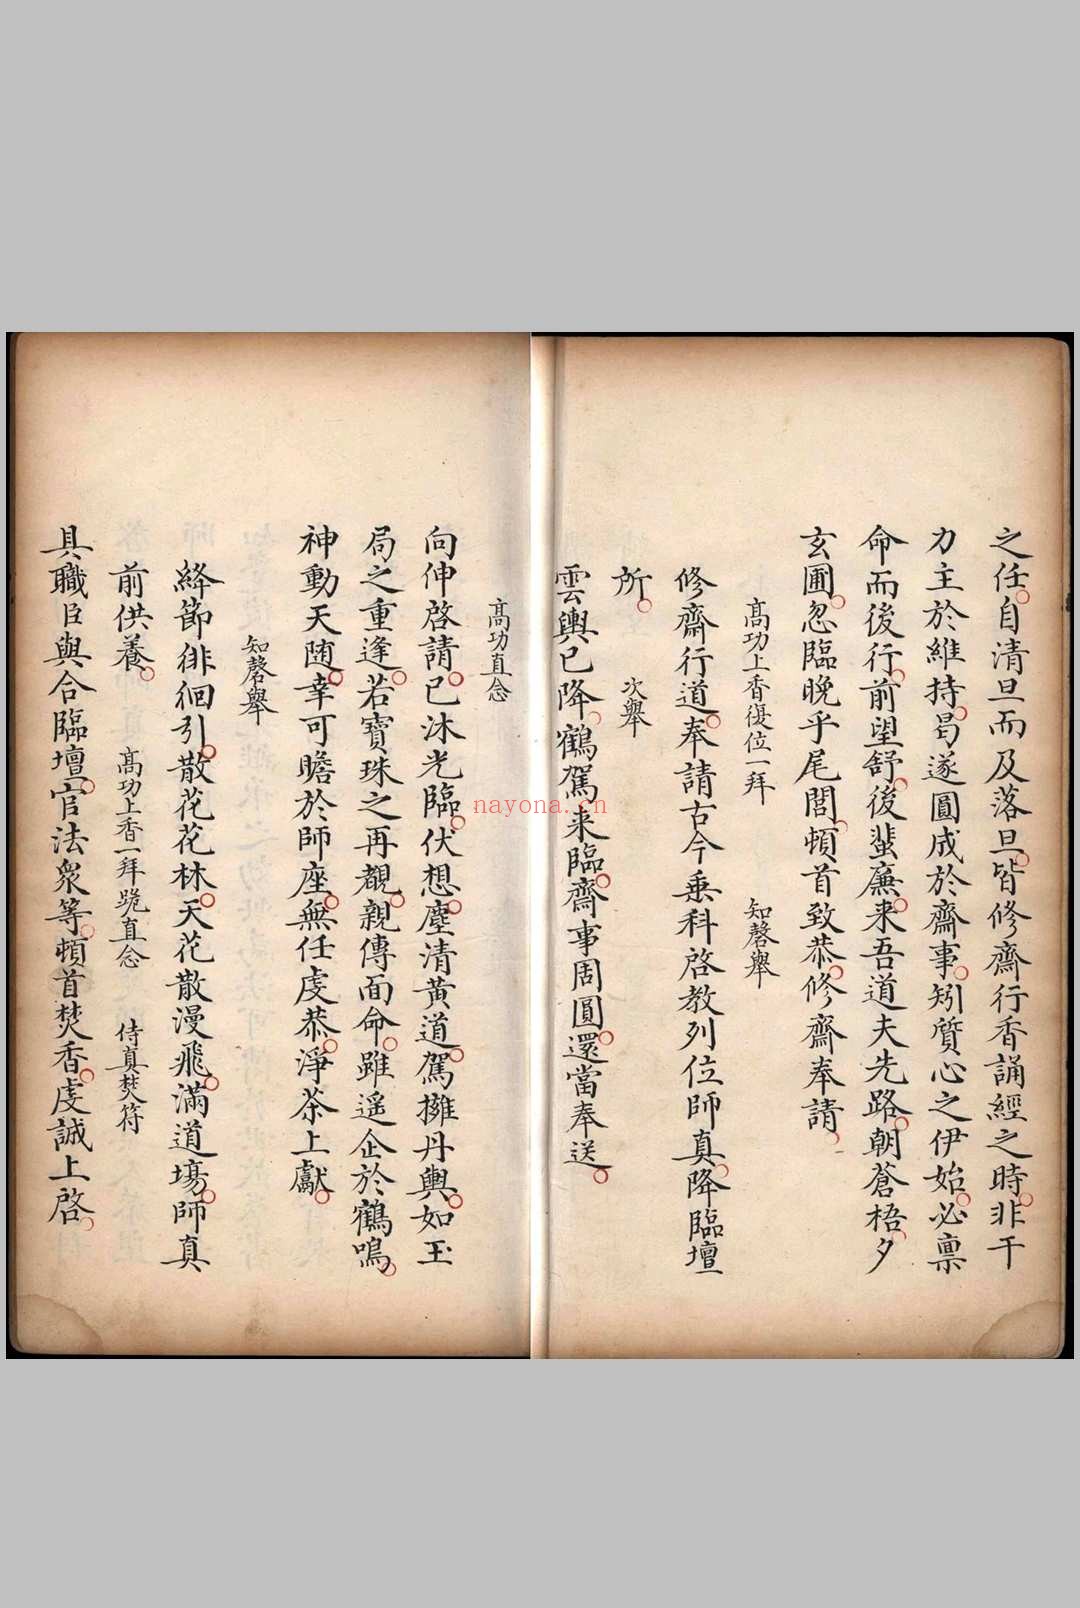 之任自清旦而及落旦皆修齋行香誦經之時非干
力主於維持曷遂圓成於齋事矧質心之伊始必禀
命而後行前望舒後蜚廉来吾道夫先路朝蒼梧夕
玄圃忽臨晚乎尾閭頓首致恭修齋奉請
高功上香復位一拜 知磬舉
修齋行道奉請古今乗科啓教列位師真降臨壇
所 次舉
雲輿已降鶴駕来臨齋事周圓還當奉送
高功直念
向伸啓請已沐光臨伏想塵清黃道駕擁丹輿如玉
局之重逢若寶珠之再覩親傳面命雖遥企於鶴鳴
神動天随幸可瞻於師座無任虔恭淨茶上獻
知磬舉
絳節徘徊引散花花林天花散漫飛滿道塲師真
前供養 高功上香一拜跪直念 侍真焚符
具職臣與合臨壇官法衆等頓首焚香虔誠上啓
nayona.cn